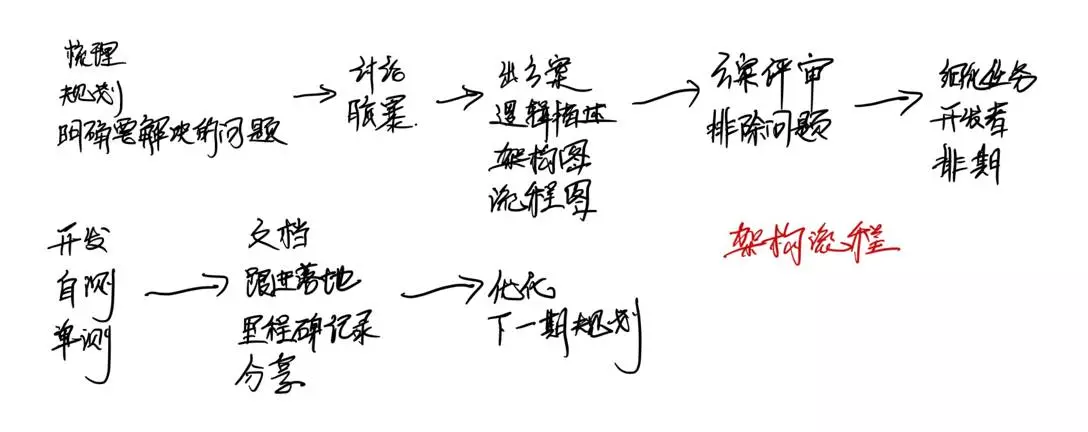 梳理
规划
明确要解决的问题
讨论
脑暴
出方案
逻辑描述
架构图
流程图
方案评审
排除问题
细化任务
开发者
排期
架构流程
开发
自测
单测
文档
跟进落地
里程碑记录
分享
优化
下一期规划